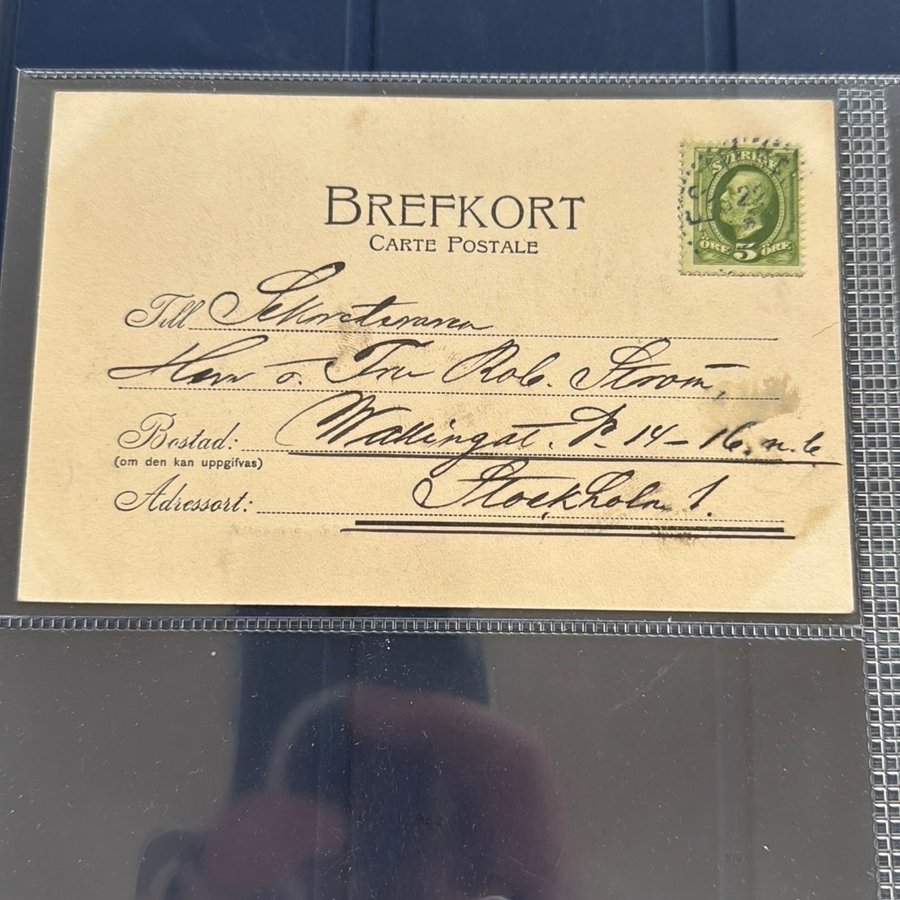 BREFKORT
CARTE POSTALE
SVERIGE
ÖRE 5 ÖRE
Till Sekreteraren
Herr o. Fru Rob. Ström,
Bostad: Wallingat. No 14–16. n.b.
(om den kan uppgifvas)
Adressort: Stockholm 1.